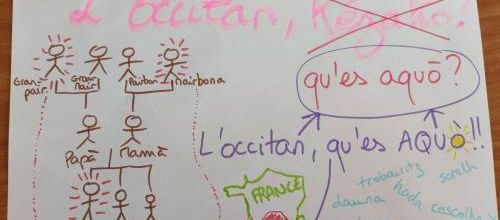 L'occitan, Kézako?
qu'es aquò?
Gran-pair
Gran-mair
Pairbon
Mairbona
L'occitan, qu'es AQUÒ!!
Papà
Mamà
FRANCE
trobairitz
sorelh
dauna
hada
cascolha